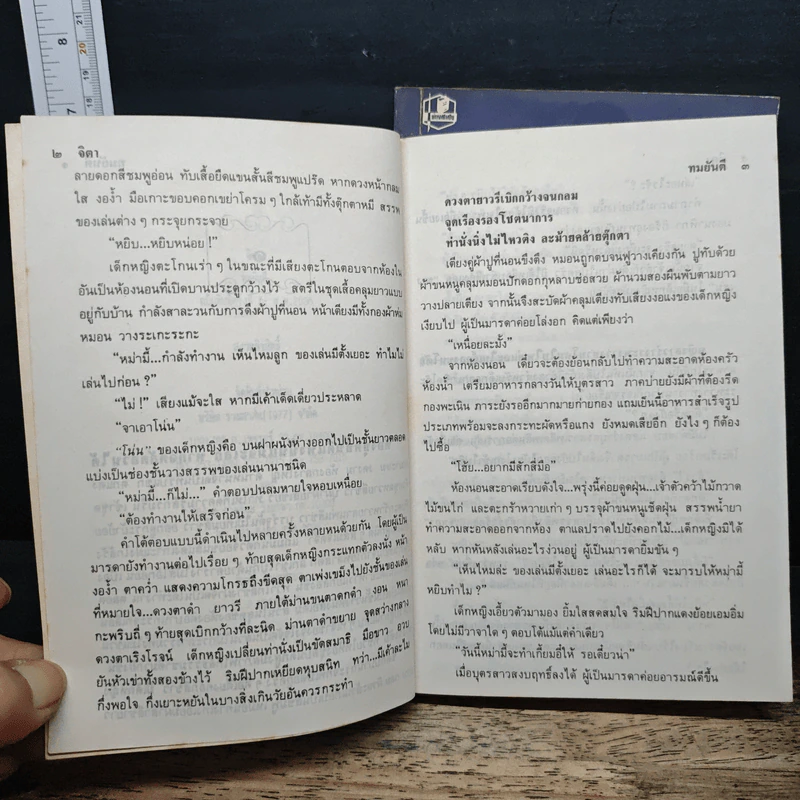 8
7
21
20
19
18
๒ จิตา
ลายดอกสีชมพูอ่อน ทับเสื้อยืดแขนสั้นสีชมพูแปร๊ด หากดวงหน้ากลม
ใส งอง้ำ มือเกาะขอบคอกเขย่าโครม ๆ ใกล้เท้ามีทั้งตุ๊กตาหมี สรรพ
ของเล่นต่าง ๆ กระจุยกระจาย
“หยิบ...หยิบหน่อย !”
เด็กหญิงตะโกนเร่า ๆ ในขณะที่มีเสียงตะโกนตอบจากห้องใน
อันเป็นห้องนอนที่เปิดบานประตูกว้างไว้ สตรีในชุดเสื้อคลุมยาวแบบ
อยู่กับบ้าน กำลังสาละวนกับการดึงผ้าปูที่นอน หน้าเตียงมีทั้งกองผ้าห่ม
หมอน วางระเกะระกะ
“หม่ามี้...กำลังทำงาน เห็นไหมลูก ของเล่นมีตั้งเยอะ ทำไมไม่
เล่นไปก่อน ?”
“ไม่ !” เสียงแม้จะใส หากมีเค้าเด็ดเดี่ยวประหลาด
“จาเอาโน่น”
“โน่น” ของเด็กหญิงคือ บนฝาผนังห่างออกไปเป็นชั้นยาวตลอด
แบ่งเป็นช่องชั้นวางสรรพของเล่นนานาชนิด
“หม่ามี้...ก็ไม่...” คำตอบปนลมหายใจหอบเหนื่อย
“ต้องทำงานให้เสร็จก่อน”
คำโต้ตอบแบบนี้ดำเนินไปหลายครั้งหลายหนด้วยกัน โดยผู้เป็น
มารดายังทำงานต่อไปเรื่อย ๆ ท้ายสุดเด็กหญิงกระแทกตัวลงนั่ง หน้า
งอง้ำ ตาคว่ำ แสดงความโกรธถึงขีดสุด ตาเพ่งเขม็งไปยังชั้นของเล่น
ที่หมายใจ...ดวงตาดำ ยาวรี ภายใต้ม่านขนตาดกดำ งอน หนา
กะพริบถี่ ๆ ท้ายสุดเบิกกว้างที่ละนิด ม่านตาดำขยาย จุดสว่างกลาง
ดวงตาเริงโรจน์ เด็กหญิงเปลี่ยนท่านั่งเป็นขัดสมาธิ มือขาว อวบ
ยันหัวเข่าทั้งสองข้างไว้ ริมฝีปากเหยียดหุบสนิท ทว่า...มีเค้าละไม
กึ่งพอใจ กึ่งเยาะหยันในบางสิ่งเกินวัยอันควรกระทำ
ทมยันตี ๓
ดวงตายาวรีเบิกกว้างจนกลม
จุดเรืองรองโชตนาการ
ท่านั่งนิ่งไม่ไหวติง ละม้ายคล้ายตุ๊กตา
เตียงคู่ผ้าปูที่นอนขึงตึง หมอนถูกตบจนฟูวางเคียงกัน ปูทับด้วย
ผ้าขนหนูคลุมหมอนปักดอกกุหลาบช่อสวย ผ้านวมสองผืนพับตามยาว
วางปลายเตียง จากนั้นจึงสะบัดผ้าคลุมเตียงทับเสียงงอแงของเด็กหญิง
เงียบไป ผู้เป็นมารดาค่อยโล่งอก คิดแต่เพียงว่า
“เหนื่อยละมั้ง”
จากห้องนอน เดี๋ยวจะต้องย้อนกลับไปทำความสะอาดห้องครัว
ห้องน้ำ เตรียมอาหารกลางวันให้บุตรสาว ภาคบ่ายยังมีผ้าที่ต้องรีด
กองพะเนิน ภาระยังรออีกมากมายก่ายกอง แถมเย็นนี้อาหารสำเร็จรูป
ประเภทพร้อมจะลงกระทะผัดหรือแกง ยังหมดเสียอีก ยังไง ๆ ก็ต้อง
ไปซื้อ
“โฮ้ย...อยากมีสักสี่มือ”
ห้องนอนสะอาดเรียบดังใจ...พรุ่งนี้ค่อยดูดฝุ่น...เจ้าตัวคว้าไม้กวาด
ไม้ขนไก่ และตะกร้าหวายเก่า ๆ บรรจุผ้าขนหนูเช็ดฝุ่น สรรพน้ำยา
ทำความสะอาดออกจากห้อง ตาแลปราดไปยังคอกไม้...เด็กหญิงมิได้
หลับ หากหันหลังเล่นอะไรง่วนอยู่ ผู้เป็นมารดายิ้มขัน ๆ
“เห็นไหมล่ะ ของเล่นมีตั้งเยอะ เล่นอะไรก็ได้ จะมารบให้หม่ามี้
หยิบทำไม ?”
เด็กหญิงเอี้ยวตัวมามอง ยิ้มใสสดสมใจ ริมฝีปากแดงย้อยเอมอิ่ม
โดยไม่มีวาจาใด ๆ ตอบโต้แม้แต่คำเดียว
“วันนี้หม่ามี้จะทำเกี้ยมอี๋ให้ รอเดี๋ยวน่า”
เมื่อบุตรสาวสงบฤทธิ์ลงได้ ผู้เป็นมารดาค่อยอารมณ์ดีขึ้น